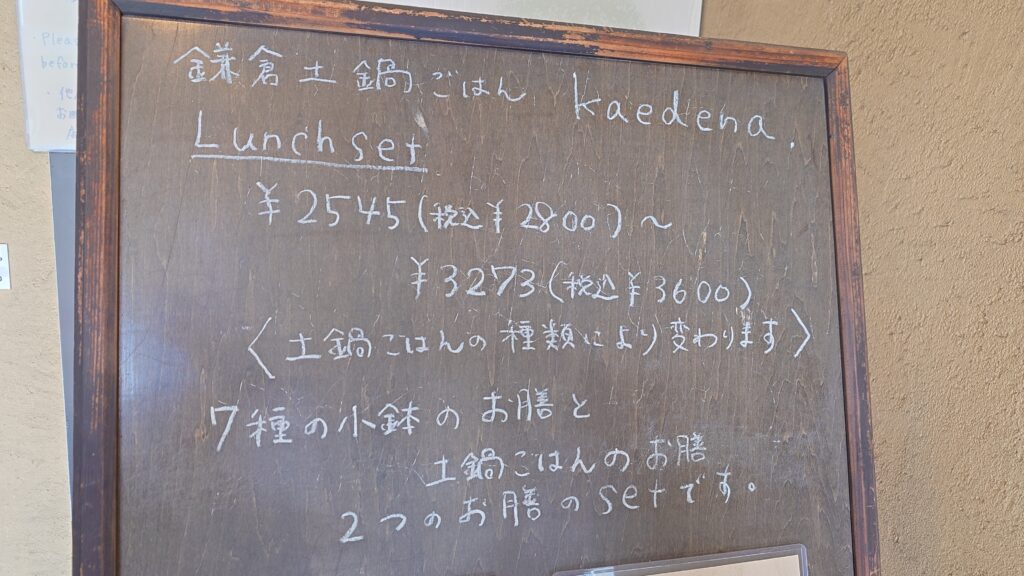 鎌倉土鍋ごはん kaedena.
Lunch set
¥2545(税込¥2800)~
¥3273(税込¥3600)
〈土鍋ごはんの種類により変わります〉
7種の小鉢のお膳と
土鍋ごはんのお膳
2つのお膳のsetです。